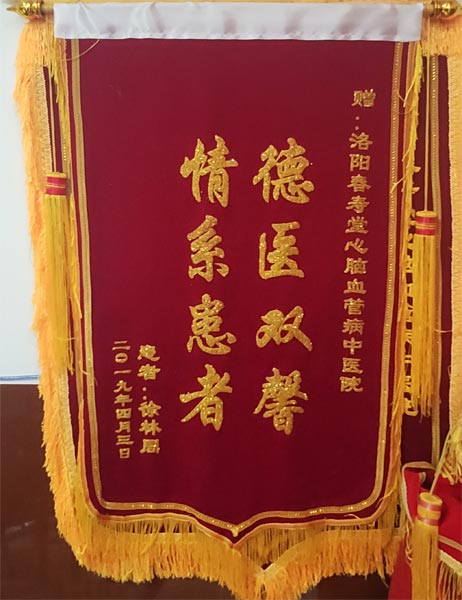 赠：洛阳春寿堂心脑血管病中医院
德医双馨
情系患者
患者：徐林周
二〇一九年四月三日